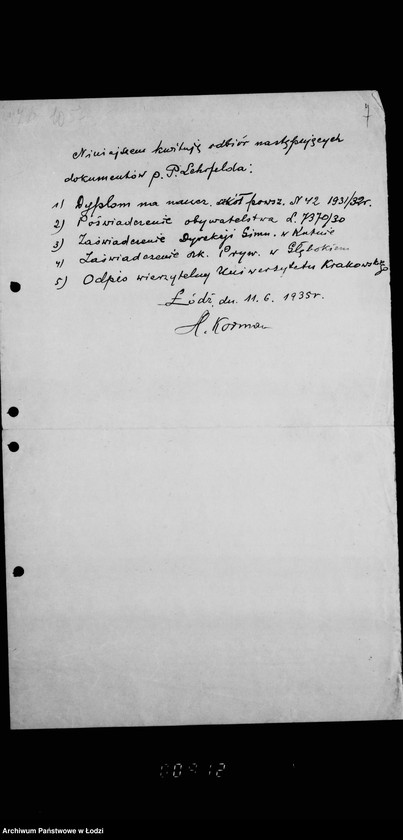 7
Niniejszem kwituję odbiór następujących
dokumentów p. P. Lehrfelda:
1) Dyplom na naucz. szkół powsz. N 42 1931/32r.
2) Poświadczenie obywatelstwa L. 7370/30
3) Zaświadczenie Dyrekcji Gimn. w Kutnie
4) Zaświadczenie szk. Pryw. w Głębokiem
5) Odpis wierzytelny Uniwersytetu Krakowskego
Łódź, dn. 11. 6. 1935 r.
H. Korman
00912
Archiwum Państwowe w Łodzi